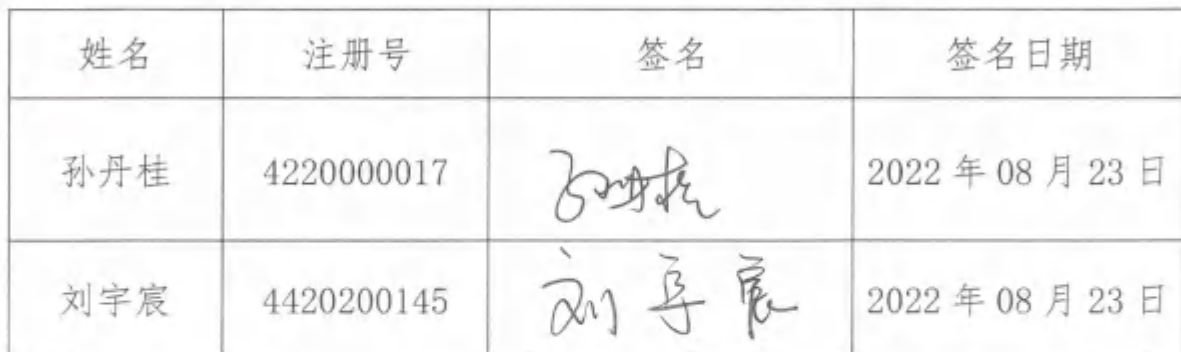 姓名 注册号 签名 签名日期
孙丹桂 4220000017 孙丹桂 2022 年 08 月 23 日
刘宇宸 4420200145 刘宇宸 2022 年 08 月 23 日